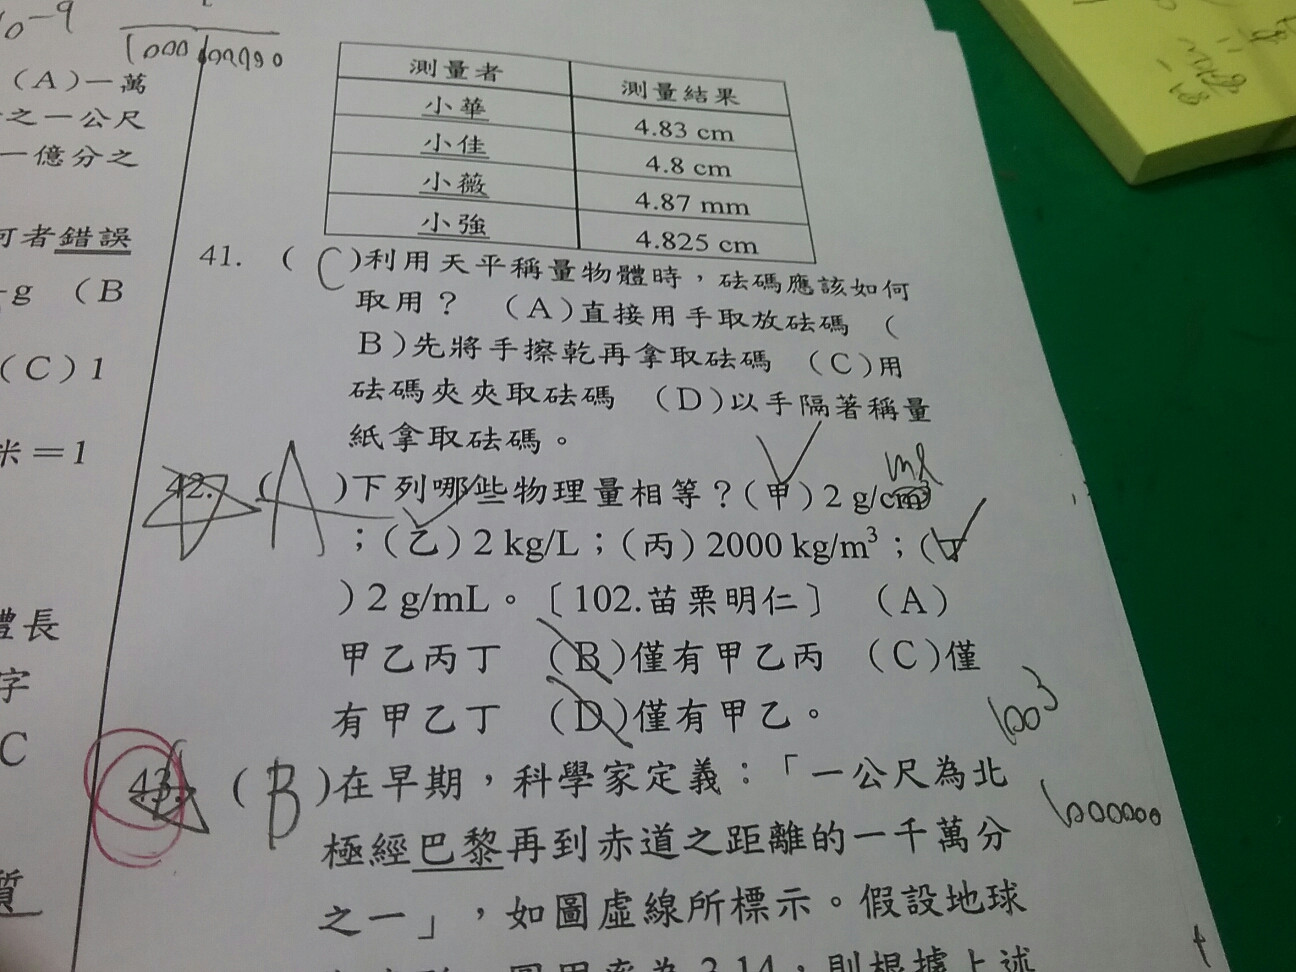 10⁻⁹
(A)一萬
之一公尺
一億分之
可者錯誤
g (B
(C)1
米=1
體長
字
C
質
測量者 測量結果
小華 4.83 cm
小佳 4.8 cm
小薇 4.87 mm
小強 4.825 cm
41. ( C )利用天平稱量物體時，砝碼應該如何
取用？ (A)直接用手取放砝碼 (
B)先將手擦乾再拿取砝碼 (C)用
砝碼夾夾取砝碼 (D)以手隔著稱量
紙拿取砝碼。
ml
42. ( A )下列哪些物理量相等？(甲)2 g/cm³
；(乙)2 kg/L；(丙)2000 kg/m³；(丁
)2 g/mL。〔102.苗栗明仁〕 (A)
甲乙丙丁 (B)僅有甲乙丙 (C)僅
有甲乙丁 (D)僅有甲乙。
100³
1000000
43. ( B )在早期，科學家定義：「一公尺為北
極經巴黎再到赤道之距離的一千萬分
之一」，如圖虛線所標示。假設地球
圓周率為 3.14，則根據上述